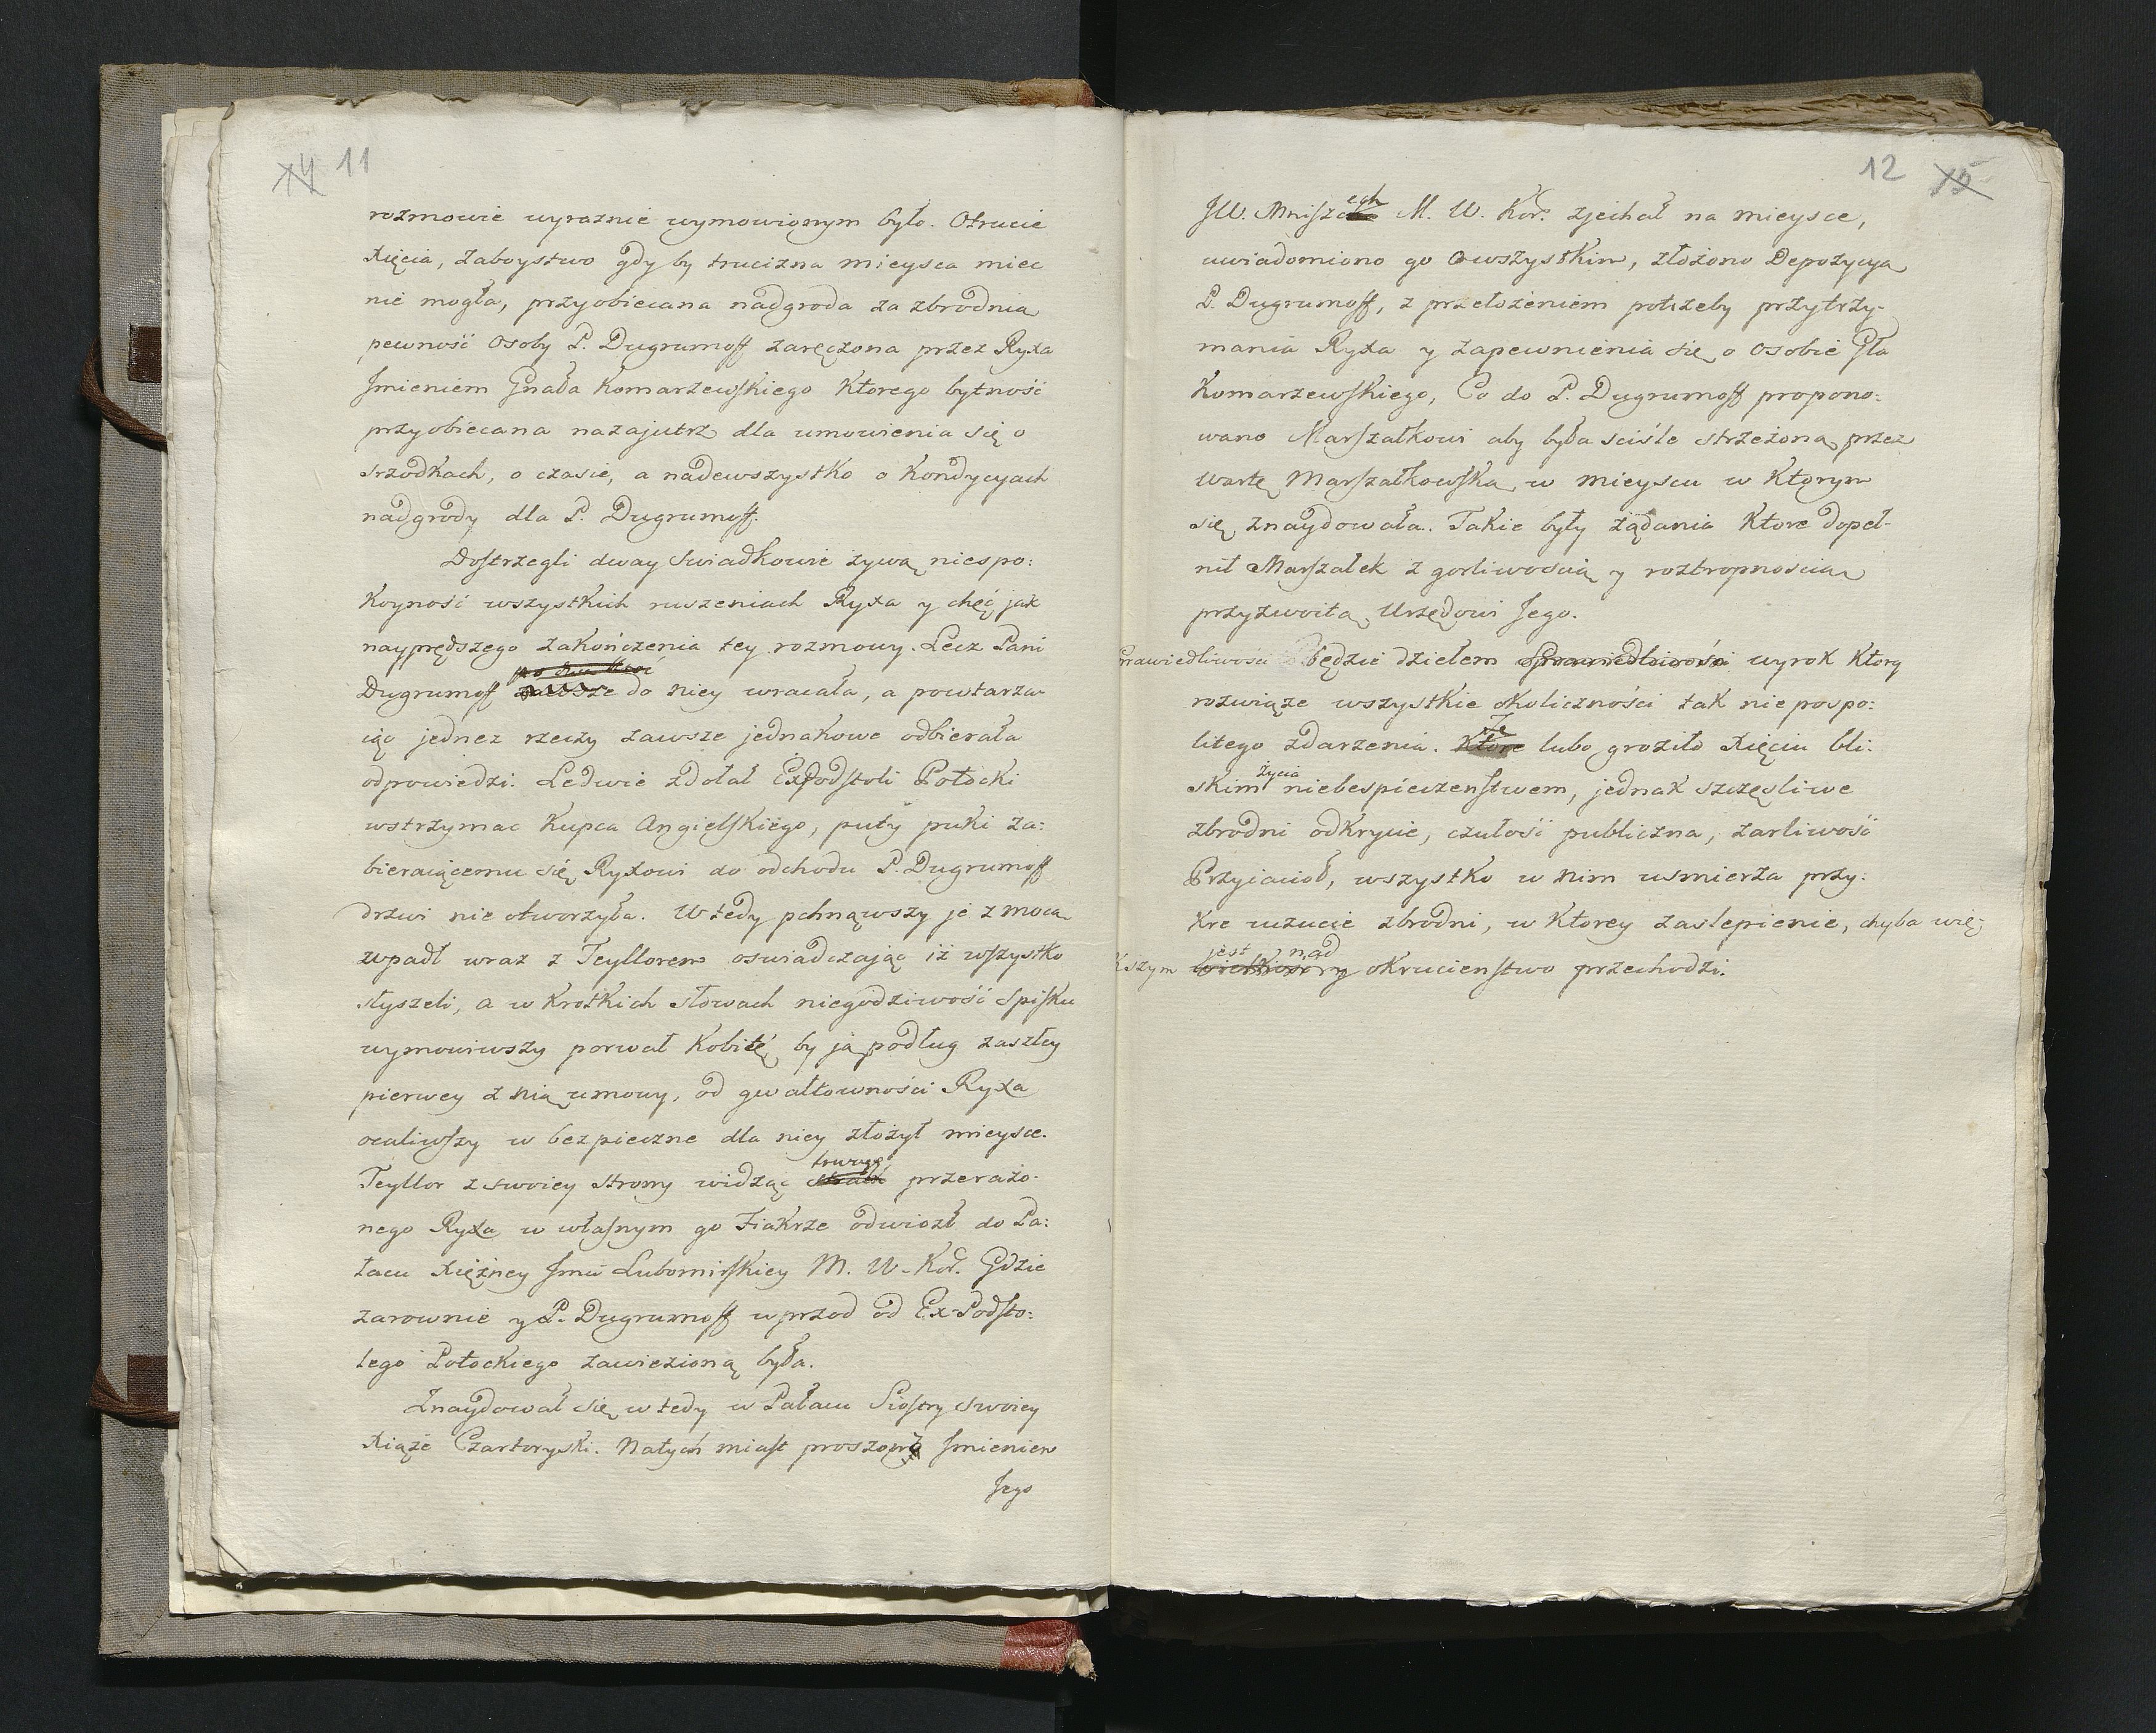 11
rozmowie wyraznie wymowionym było. Otrucie
Xięcia, zaboystwo gdy by trucizna mieysca miec
nie mogła, przyobiecana nadgroda za zbrodnią
pewność osoby P. Dugrumoff zaręczona przez Ryxa
Jmieniem Gnała Komarzewskiego Ktorego bytność
przyobiecana nazajutrz dla umowienia się o
srzodkach, o czasie, a nadewszystko o Kondycyach
nadgrody dla P. Dugrumoff.
Dostrzegli dway Swiadkowie żywą niespo:
Koyność wszystkich ruszeniach Ryxa y chęć jak
nayprędszego zakończenia tey rozmowy. Lecz Pani
Dugrumoff zawsze do niey wracała, a powtarza-
iąc jednez rzeczy zawsze jednakowe odbierała
odpowiedzi. Ledwie zdołał Expodstoli Potocki
wstrzymac Kupca Angielskiego, puty puki za:
bieraiącemu się Ryxowi do odchodu P. Dugrumoff
drzwi nie otworzyła. Wtedy pchnąwszy je z mocą
wpadł wraz z Teyllorem oswiadczając iż wszystko
słyszeli, a w Krotkich słowach niegodziwość Spisku
wymowiwszy porwał Kobitę, by ją podług zaszłey
pierwey z nią umowy, od gwałtowności Ryxa
ocaliwszy w bezpieczne dla niey złożył mieysce.
trwogą
Teyllor z swoiey strony widząc przerażo-
nego Ryxa w własnym go Fiakrze odwiozł do Pa:
łacu Xiężney Jmci Lubomirskiey M. W. Kor. Gdzie
zarownie y P. Dugrumoff wprzod od Ex-Podsto:
lego Potockiego zawiezioną była.
Znaydował się wtedy w Pałacu Siostry swoiey
Xiąże Czartoryski. Natych miast proszony Jmieniem
Jego
12
ech
JW. Mnisz M. W. Kor. zjechał na mieysce,
uwiadomiono go owszystkim, złożono Depozycyą
P. Dugrumoff, z przełożeniem potrzeby przytrzy-
mania Ryxa y zapewnienia się o osobie Gła
Komarzewskiego, Co do P. Dugrumoff propono:
wano Marszałkowi aby była sciśle strzeżoną przez
wartę Marszałkowską w mieyscu w Ktorym
się znaydowała. Takie były żądania Ktore dopeł-
nił Marszałek z gorliwoscią y roztropnoscią
przyzwoitą Urzędowi Jego.
prawiedliwości Będzie dziełem Sprawiedliwości wyrok Ktory
rozwiąże wszystkie okoliczności tak niepospo:
Ze
litego zdarzenia. Ktore lubo groziło Xięciu bli:
życia
skim niebespieczenstwem, jednak szczęsliwe
zbrodni odkrycie, czułość publiczna, zarliwość
Przyiacioł, wszystko w nim usmierza przy:
kre uzucie zbrodni, w Ktorey zaslepienie, chyba wię:
jest nad
kszym okrucienstwo przechodzi.